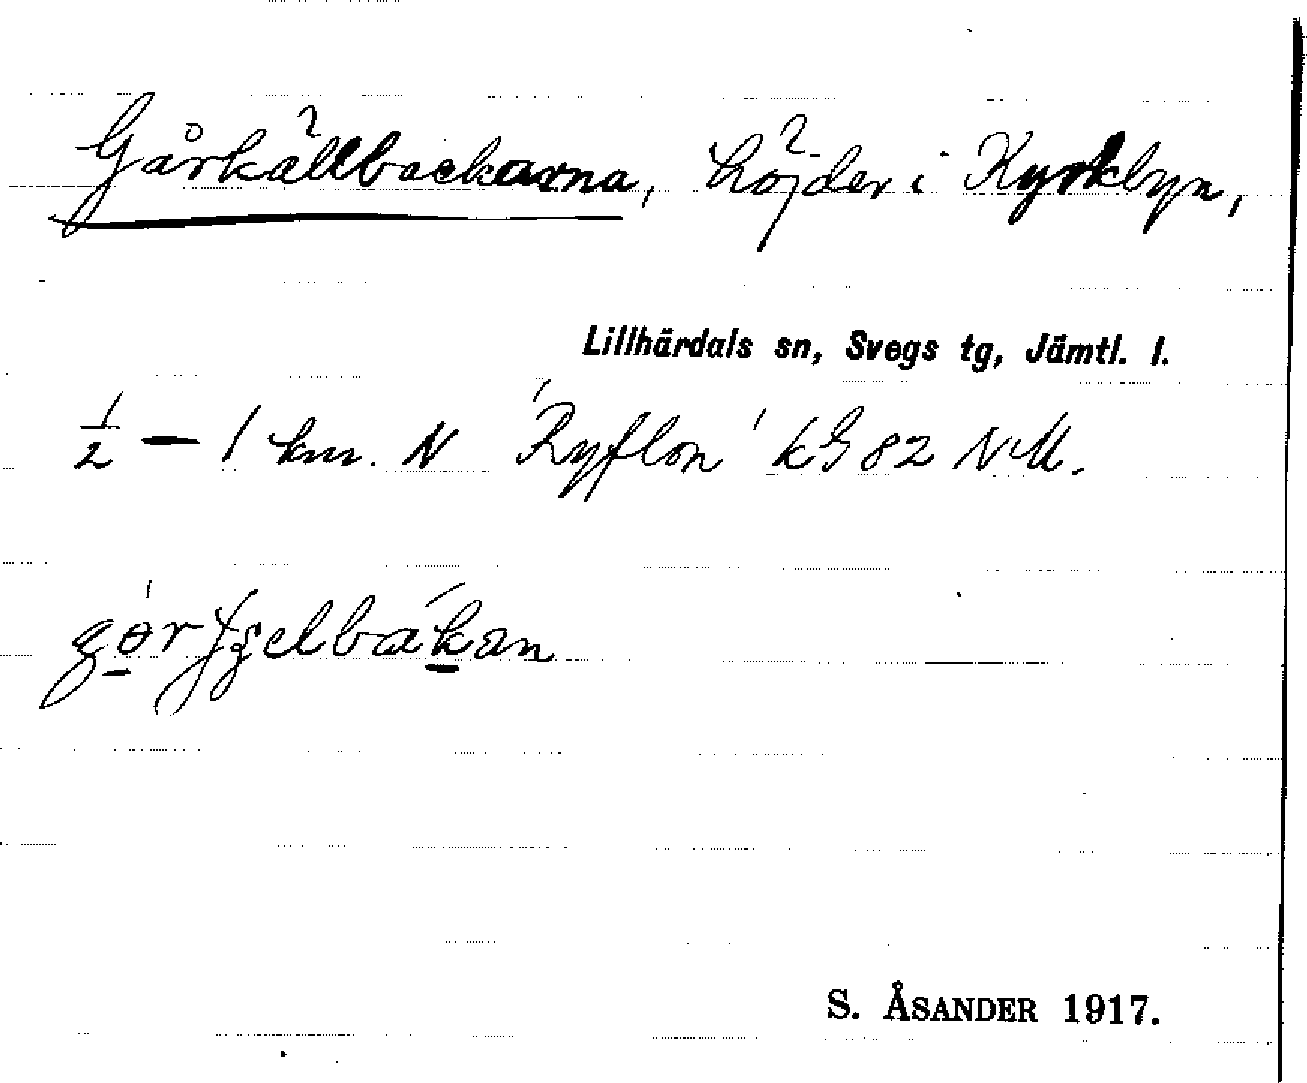 Gårkällbackarna, höjder i Kyrkbyn,
Lillhärdals sn, Svegs tg, Jämtl. l.
½ — 1 km. N Ryflon kG 82 NM.
S. ÅSANDER 1917.